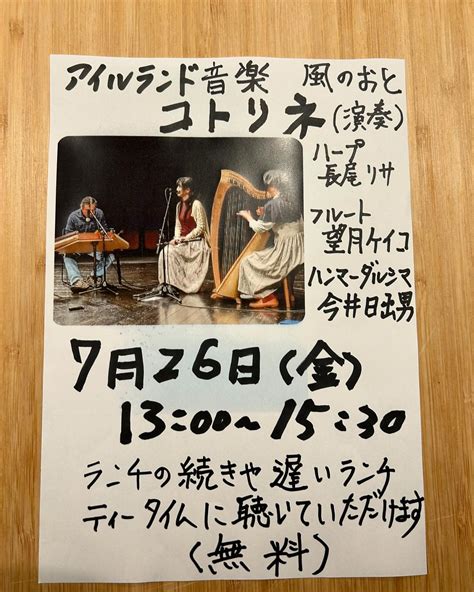 アイルランド音楽 風のおと
コトリネ(演奏)
ハープ
長尾リサ
フルート
望月ケイコ
ハンマーダルシマ
今井日出男
7月26日(金)
13:00~15:30
ランチの続きや遅いランチ
ティータイムに聴いていただけます
(無料)